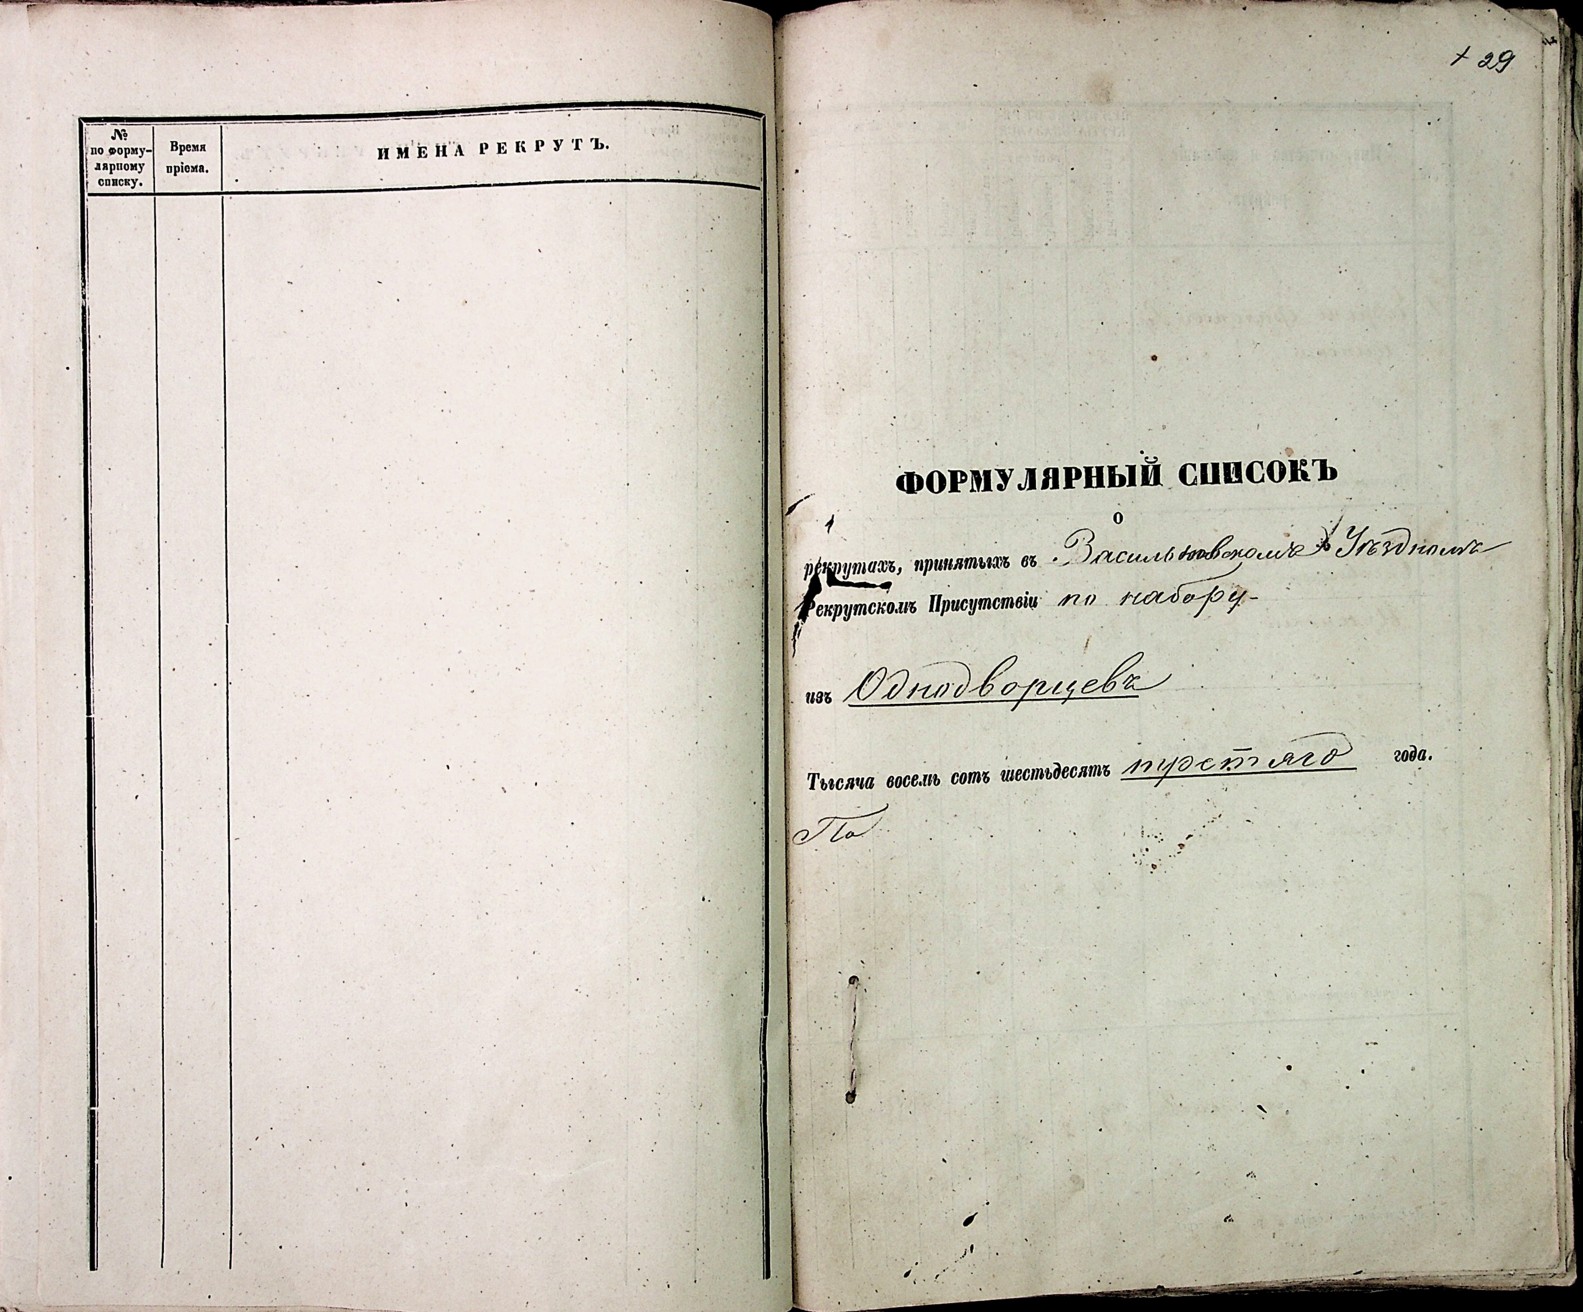 №
по форму-
лярному
списку.
Время
пріема.
ИМЕНА РЕКРУТЪ.
+ 29
ФОРМУЛЯРНЫЙ СПИСОКЪ
о
рекрутахъ, принятыхъ въ Васильковскомъ Уѣздномъ
Рекрутскомъ Присутствіи по набору
изъ Однодворцевъ
Тысяча восемь сотъ шестьдесятъ третяго года.
По